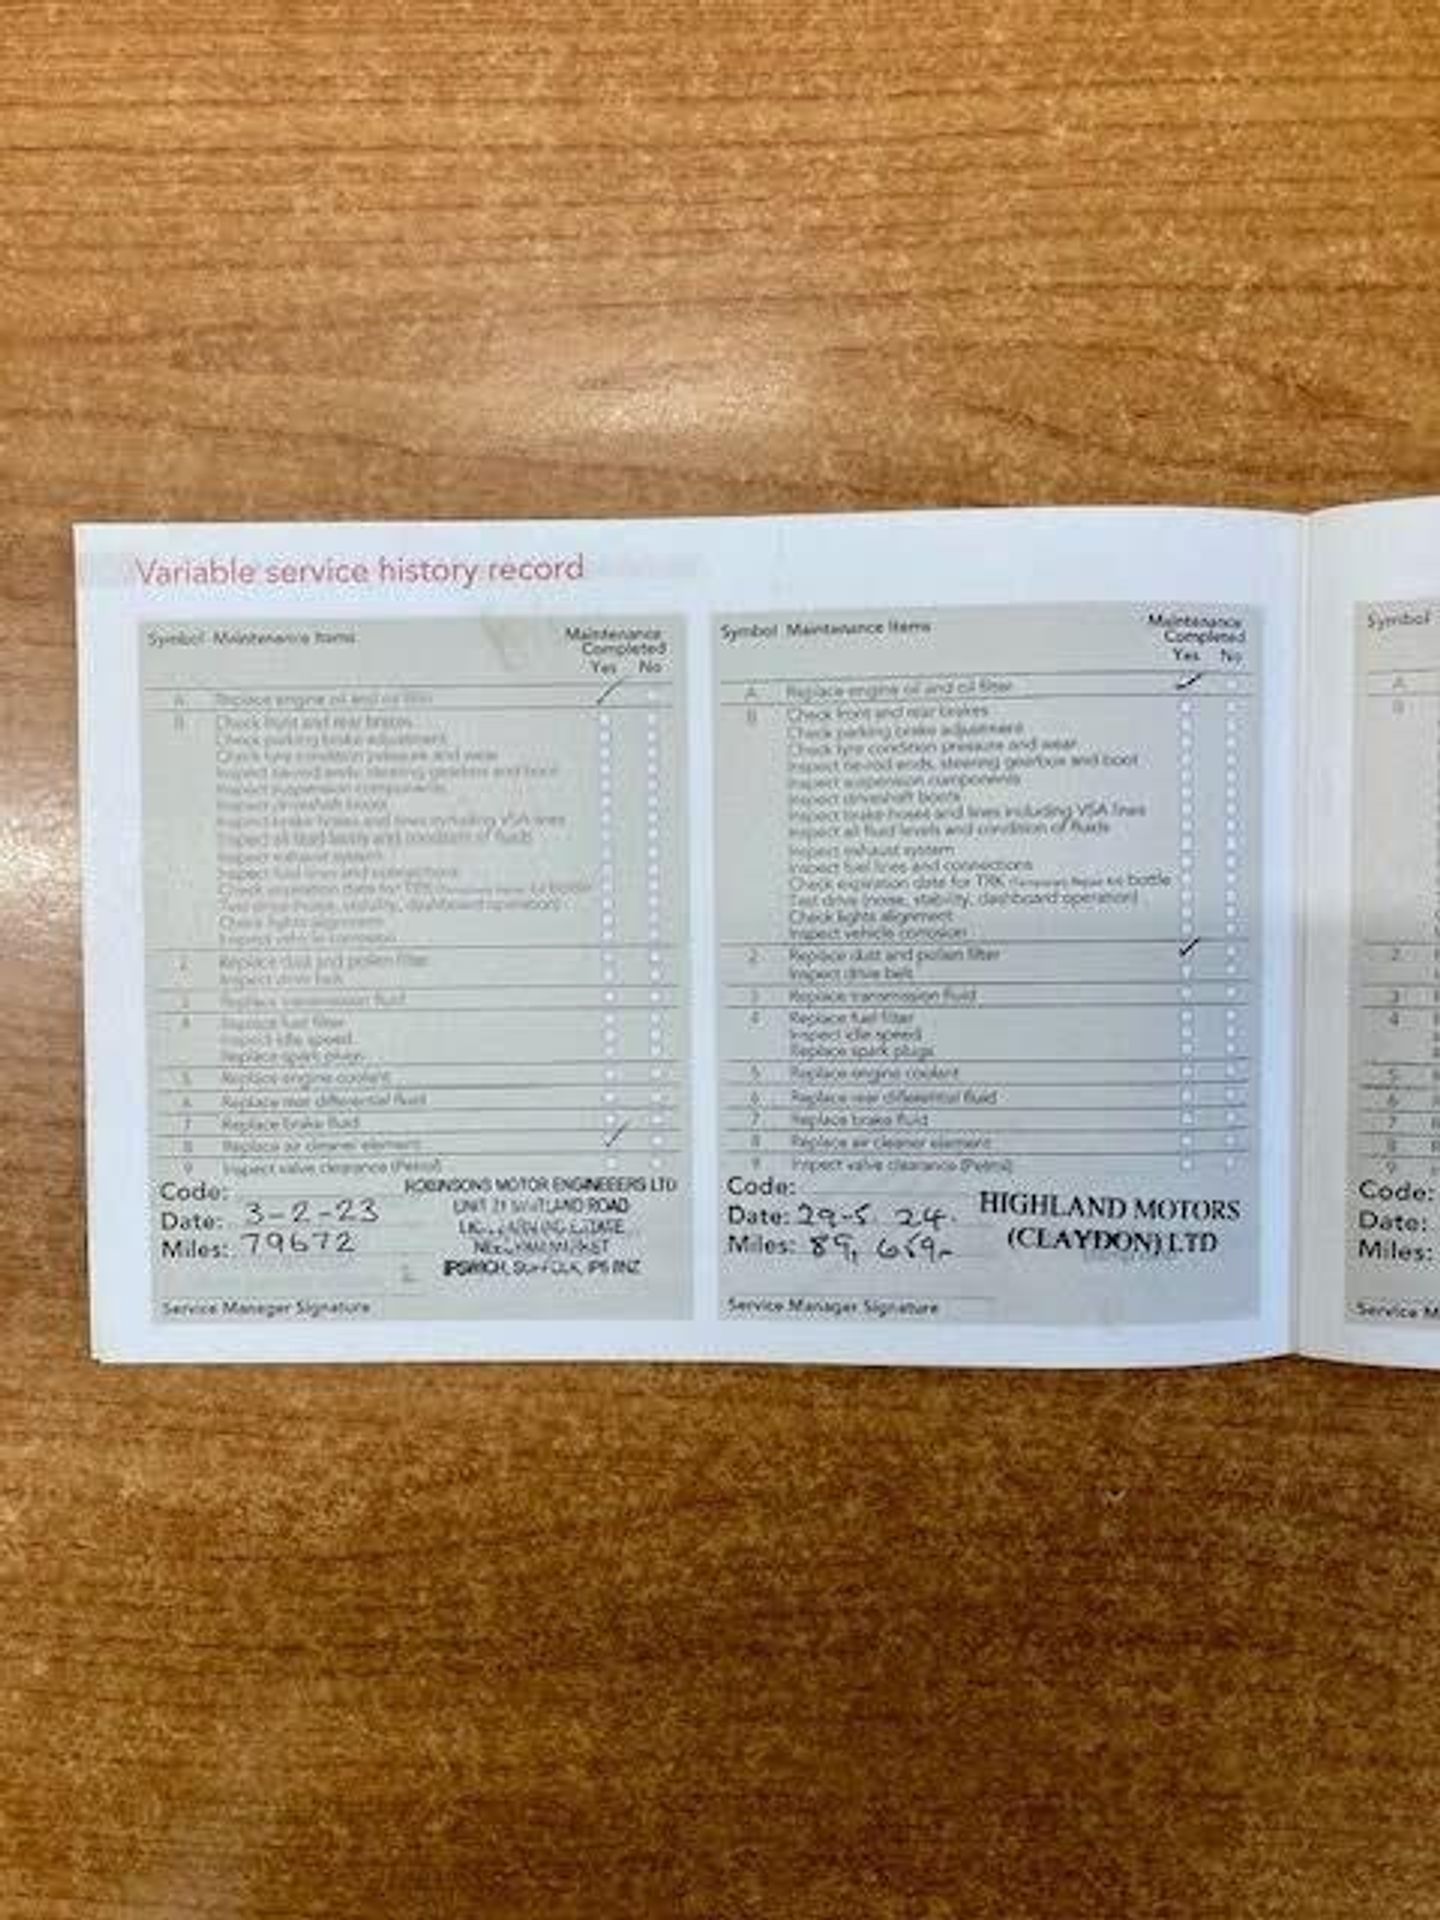 Variable service history record
Symbol Maintenance Items Maintenance Completed Yes No
A Replace engine oil and oil filter
B Check front and rear brakes
Check parking brake adjustment
Check tyre condition pressure and wear
Inspect tie-rod ends, steering gearbox and boot
Inspect suspension components
Inspect driveshaft boots
Inspect brake hoses and lines including VSA lines
Inspect all fluid levels and condition of fluids
Inspect exhaust system
Inspect fuel lines and connections
Check expiration date for TRK (Temporary Repair Kit) bottle
Test drive (noise, stability, dashboard operation)
Check lights alignment
Inspect vehicle corrosion
2 Replace dust and pollen filter
Inspect drive belt
3 Replace transmission fluid
4 Replace fuel filter
Inspect idle speed
Replace spark plugs
5 Replace engine coolant
6 Replace rear differential fluid
7 Replace brake fluid
8 Replace air cleaner element
9 Inspect valve clearance (Petrol)
Code:
Date: 3-2-23
Miles: 79672
ROBINSONS MOTOR ENGINEEERS LTD
UNIT ROAD
IPSWICH, SUFFOLK, IP6
Service Manager Signature
Symbol Maintenance Items Maintenance Completed Yes No
A Replace engine oil and oil filter
B Check front and rear brakes
Check parking brake adjustment
Check tyre condition pressure and wear
Inspect tie-rod ends, steering gearbox and boot
Inspect suspension components
Inspect driveshaft boots
Inspect brake hoses and lines including VSA lines
Inspect all fluid levels and condition of fluids
Inspect exhaust system
Inspect fuel lines and connections
Check expiration date for TRK (Temporary Repair Kit) bottle
Test drive (noise, stability, dashboard operation)
Check lights alignment
Inspect vehicle corrosion
2 Replace dust and pollen filter
Inspect drive belt
3 Replace transmission fluid
4 Replace fuel filter
Inspect idle speed
Replace spark plugs
5 Replace engine coolant
6 Replace rear differential fluid
7 Replace brake fluid
8 Replace air cleaner element
9 Inspect valve clearance (Petrol)
Code:
Date: 29-5. 24.
Miles: 89, 659-
HIGHLAND MOTORS
(CLAYDON) LTD
Service Manager Signature
Symbol
A
B
2
3
4
5
6
7
8
9
Code:
Date:
Miles:
Service M